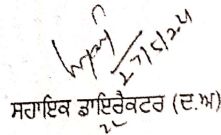 27/5/24
ਸਹਾਇਕ ਡਾਇਰੈਕਟਰ (ਦ.ਅ)